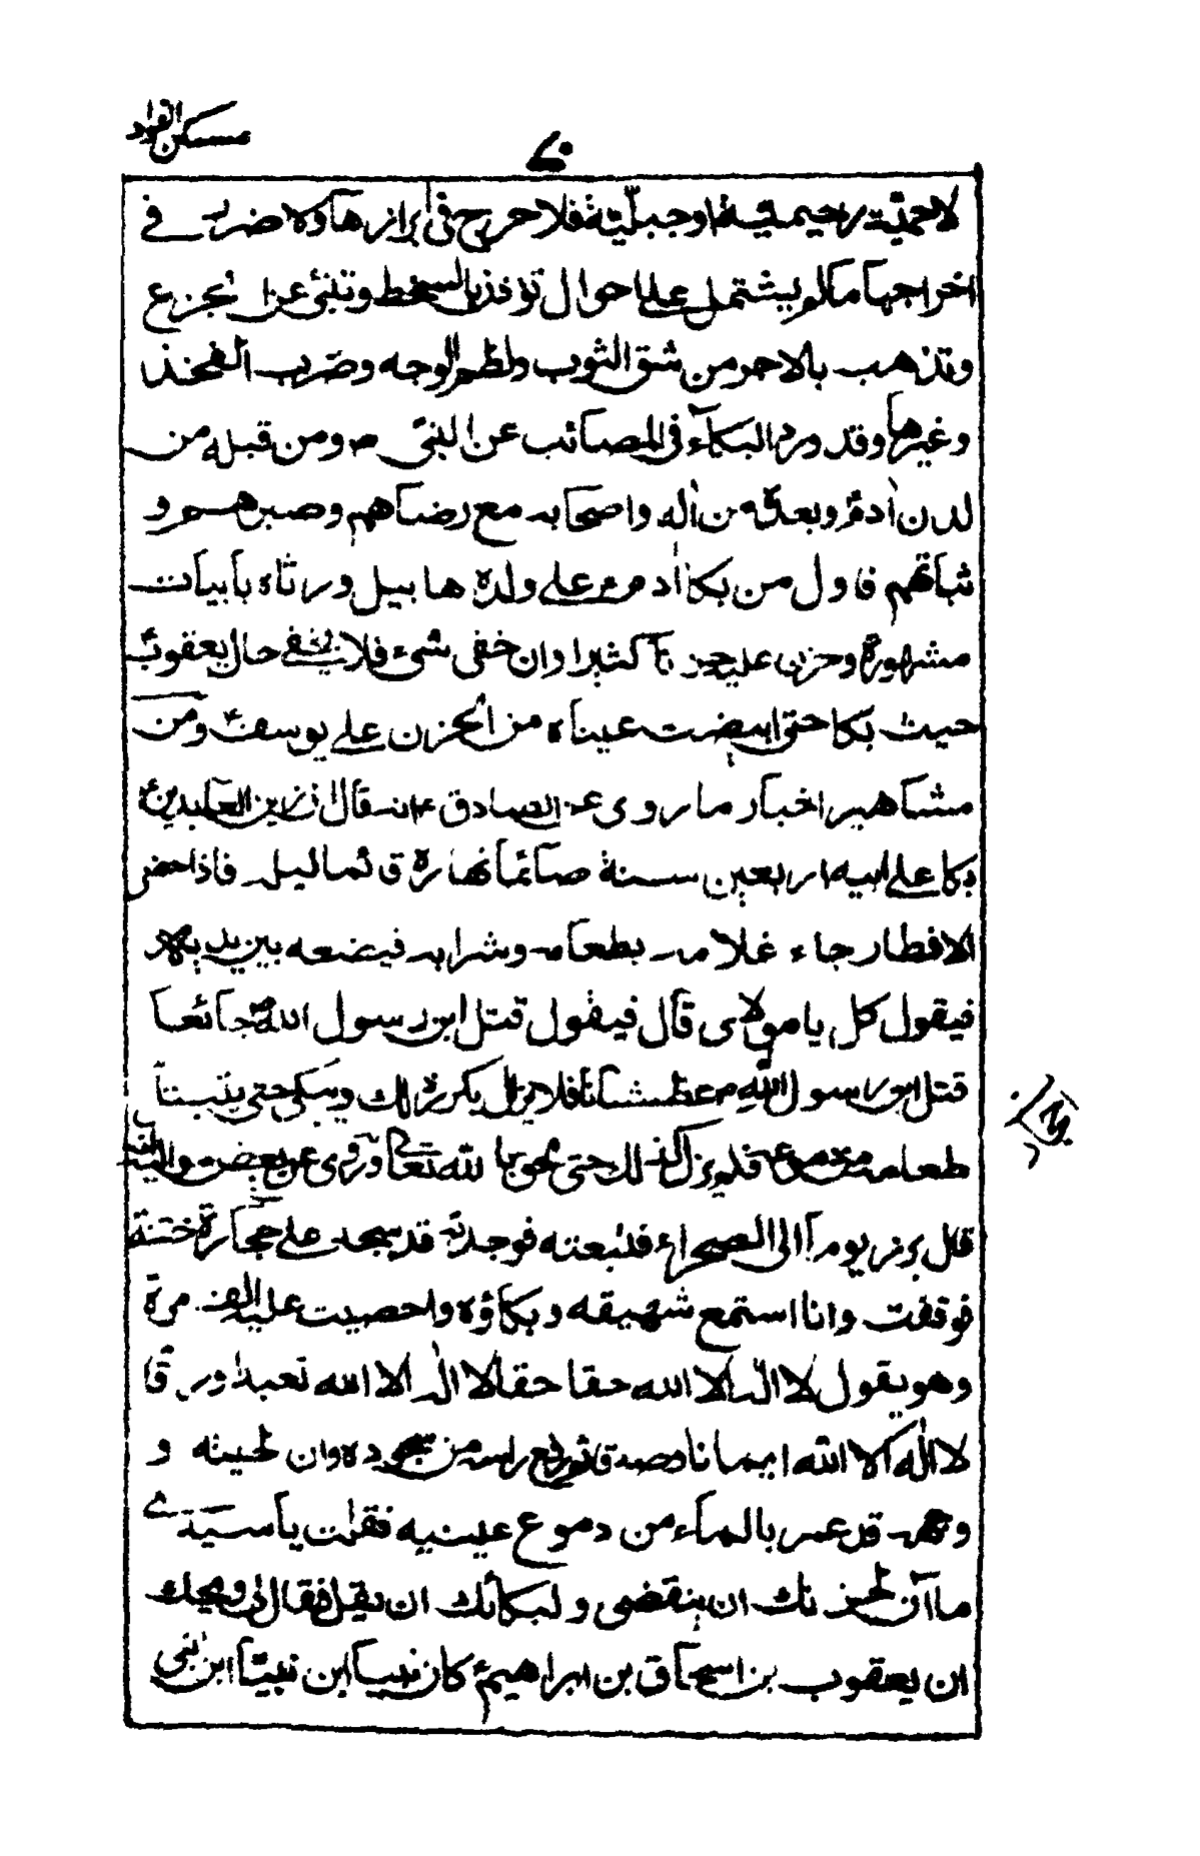 مسكن الفواد
٧٠
لاحميّة رحيميّة او جبليّة فلا حرج في ابرازها ولا ضرب في
اخراجها مالم يشتمل على احوال تؤذن بالسخط وتنبئ عن الجزع
وتذهب بالاجر من شق الثوب ولطم الوجه وضرب الفخذ
وغيرها وقد ورد البكاء في المصائب عن النبي ص ومن قبله من
لدن اٰدم ع وبعده من اٰله واصحابه مع رضاهم وصبرهم و
ثباتهم فاول من بكا اٰدم ع على ولده هابيل ورثاه بابيات
مشهورة وحزن عليه حزنا كثيرا وان خفى شئ فلا يخفى حال يعقوب ع
حيث بكا حتى ابيضت عيناه من الحزن على يوسف ع ومن
مشاهير اخبار ما روى عن الصادق ع انه قال ان زين العابدين ع
بكا على ابيه اربعين سنة صائما نهاره قائما ليله فاذا حضر
الافطار جاء غلامه بطعامه وشرابه فيضعه بين يديه
فيقول كل يا مولاى قال فيقول قتل ابن رسول الله ص جائعا
قتل ابن رسول الله ص عطشانا فلا يزال يكرر ذلك ويبكى حتى يبتل
طعامه من دموعه فلم يزل كذلك حتى لحق بالله تعالى وروى عن بعض مواليه انه
قال برز يوما الى الصحراء فتبعته فوجدته قد سجد على حجارة خشنة
فوقفت وانا استمع شهيقه وبكاؤه واحصيت عليه الف مرة
وهو يقول لا الٰه الا الله حقا حقا لا الٰه الا الله تعبدا ورقا
لا الٰه الا الله ايمانا وصدقا ثم رفع راسه من سجوده وان لحيته و
وجهه قد غمر بالماء من دموع عينيه فقلت يا سيدى
ما آن لحزنك ان ينقضى ولبكائك ان يقل فقال لى ويحك
ان يعقوب بن اسحاق بن ابراهيم ع كان نبيا ابن نبيّا ابن نبى